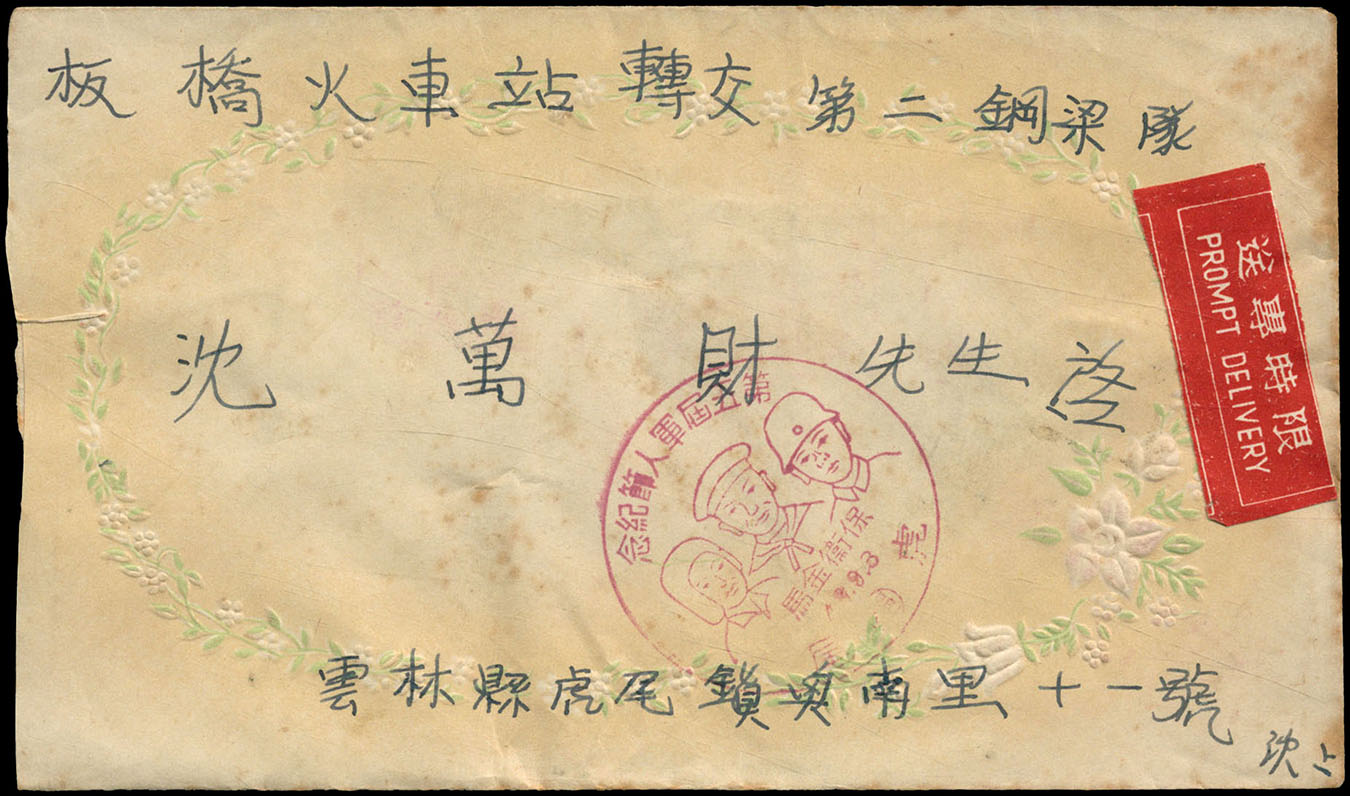 板橋火車站轉交第二鋼梁隊
限時專送
PROMPT DELIVERY
沈萬財先生啓
第五屆軍人節紀念
保衛金馬
9.3
虎尾
雲林縣虎尾鎖奥南里十一號
沈